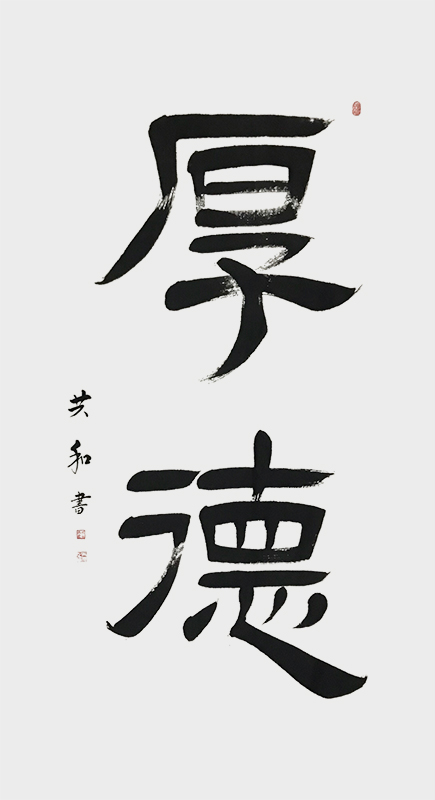 厚德
共和書